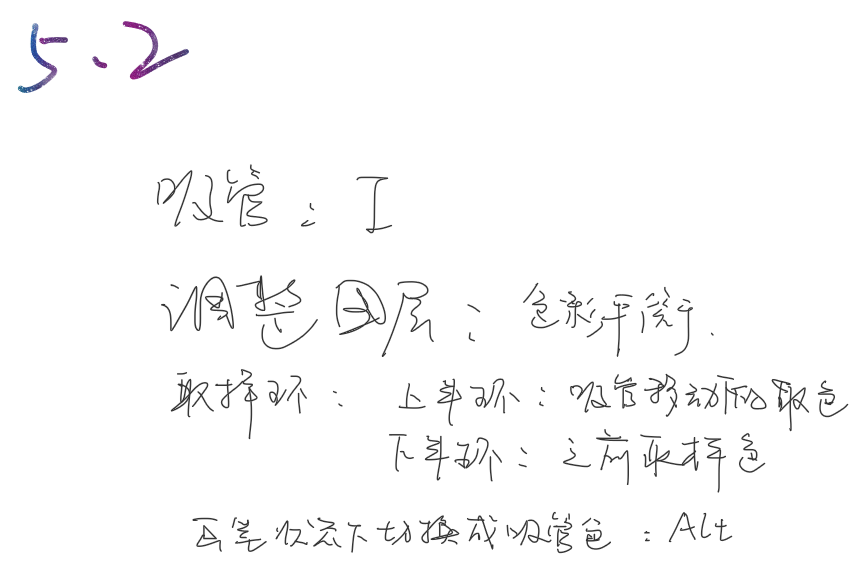 5.2
吸管：I
调整图层：色彩平衡.
取样环：上半环：吸管移动的取色
下半环：之前取样色
画笔状态下切换成吸管色：Alt